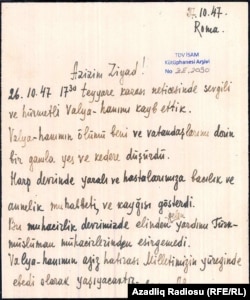 10.47.
Roma.
TDV İSAM
Kütüphanesi Arşivi
No 2E.2030
Azizim Ziyad!
26.10.47 17³⁰ teyyare kazası neticesinde sevgili
ve hürmetli Valya-hanımı kayb ettik.
Valya-hanımın ölümü beni ve vatandaşlarımı derin
bir gamla yes ve kedere düşürdü.
Harp devrinde yaralı ve hastalarımıza bacılık ve
annelik muhabbeti ve kaygısı gösterdi.
Bu muhacirlik devrimizde elinden gelen yardımı Türk-
müslüman muhacirlerinden esirgemedi.
Valya-hanımın aziz hatirası Milletimizin yüreginde
ebedi olarak yaşıyacaktır.
Azadlıq Radiosu (RFE/RL)